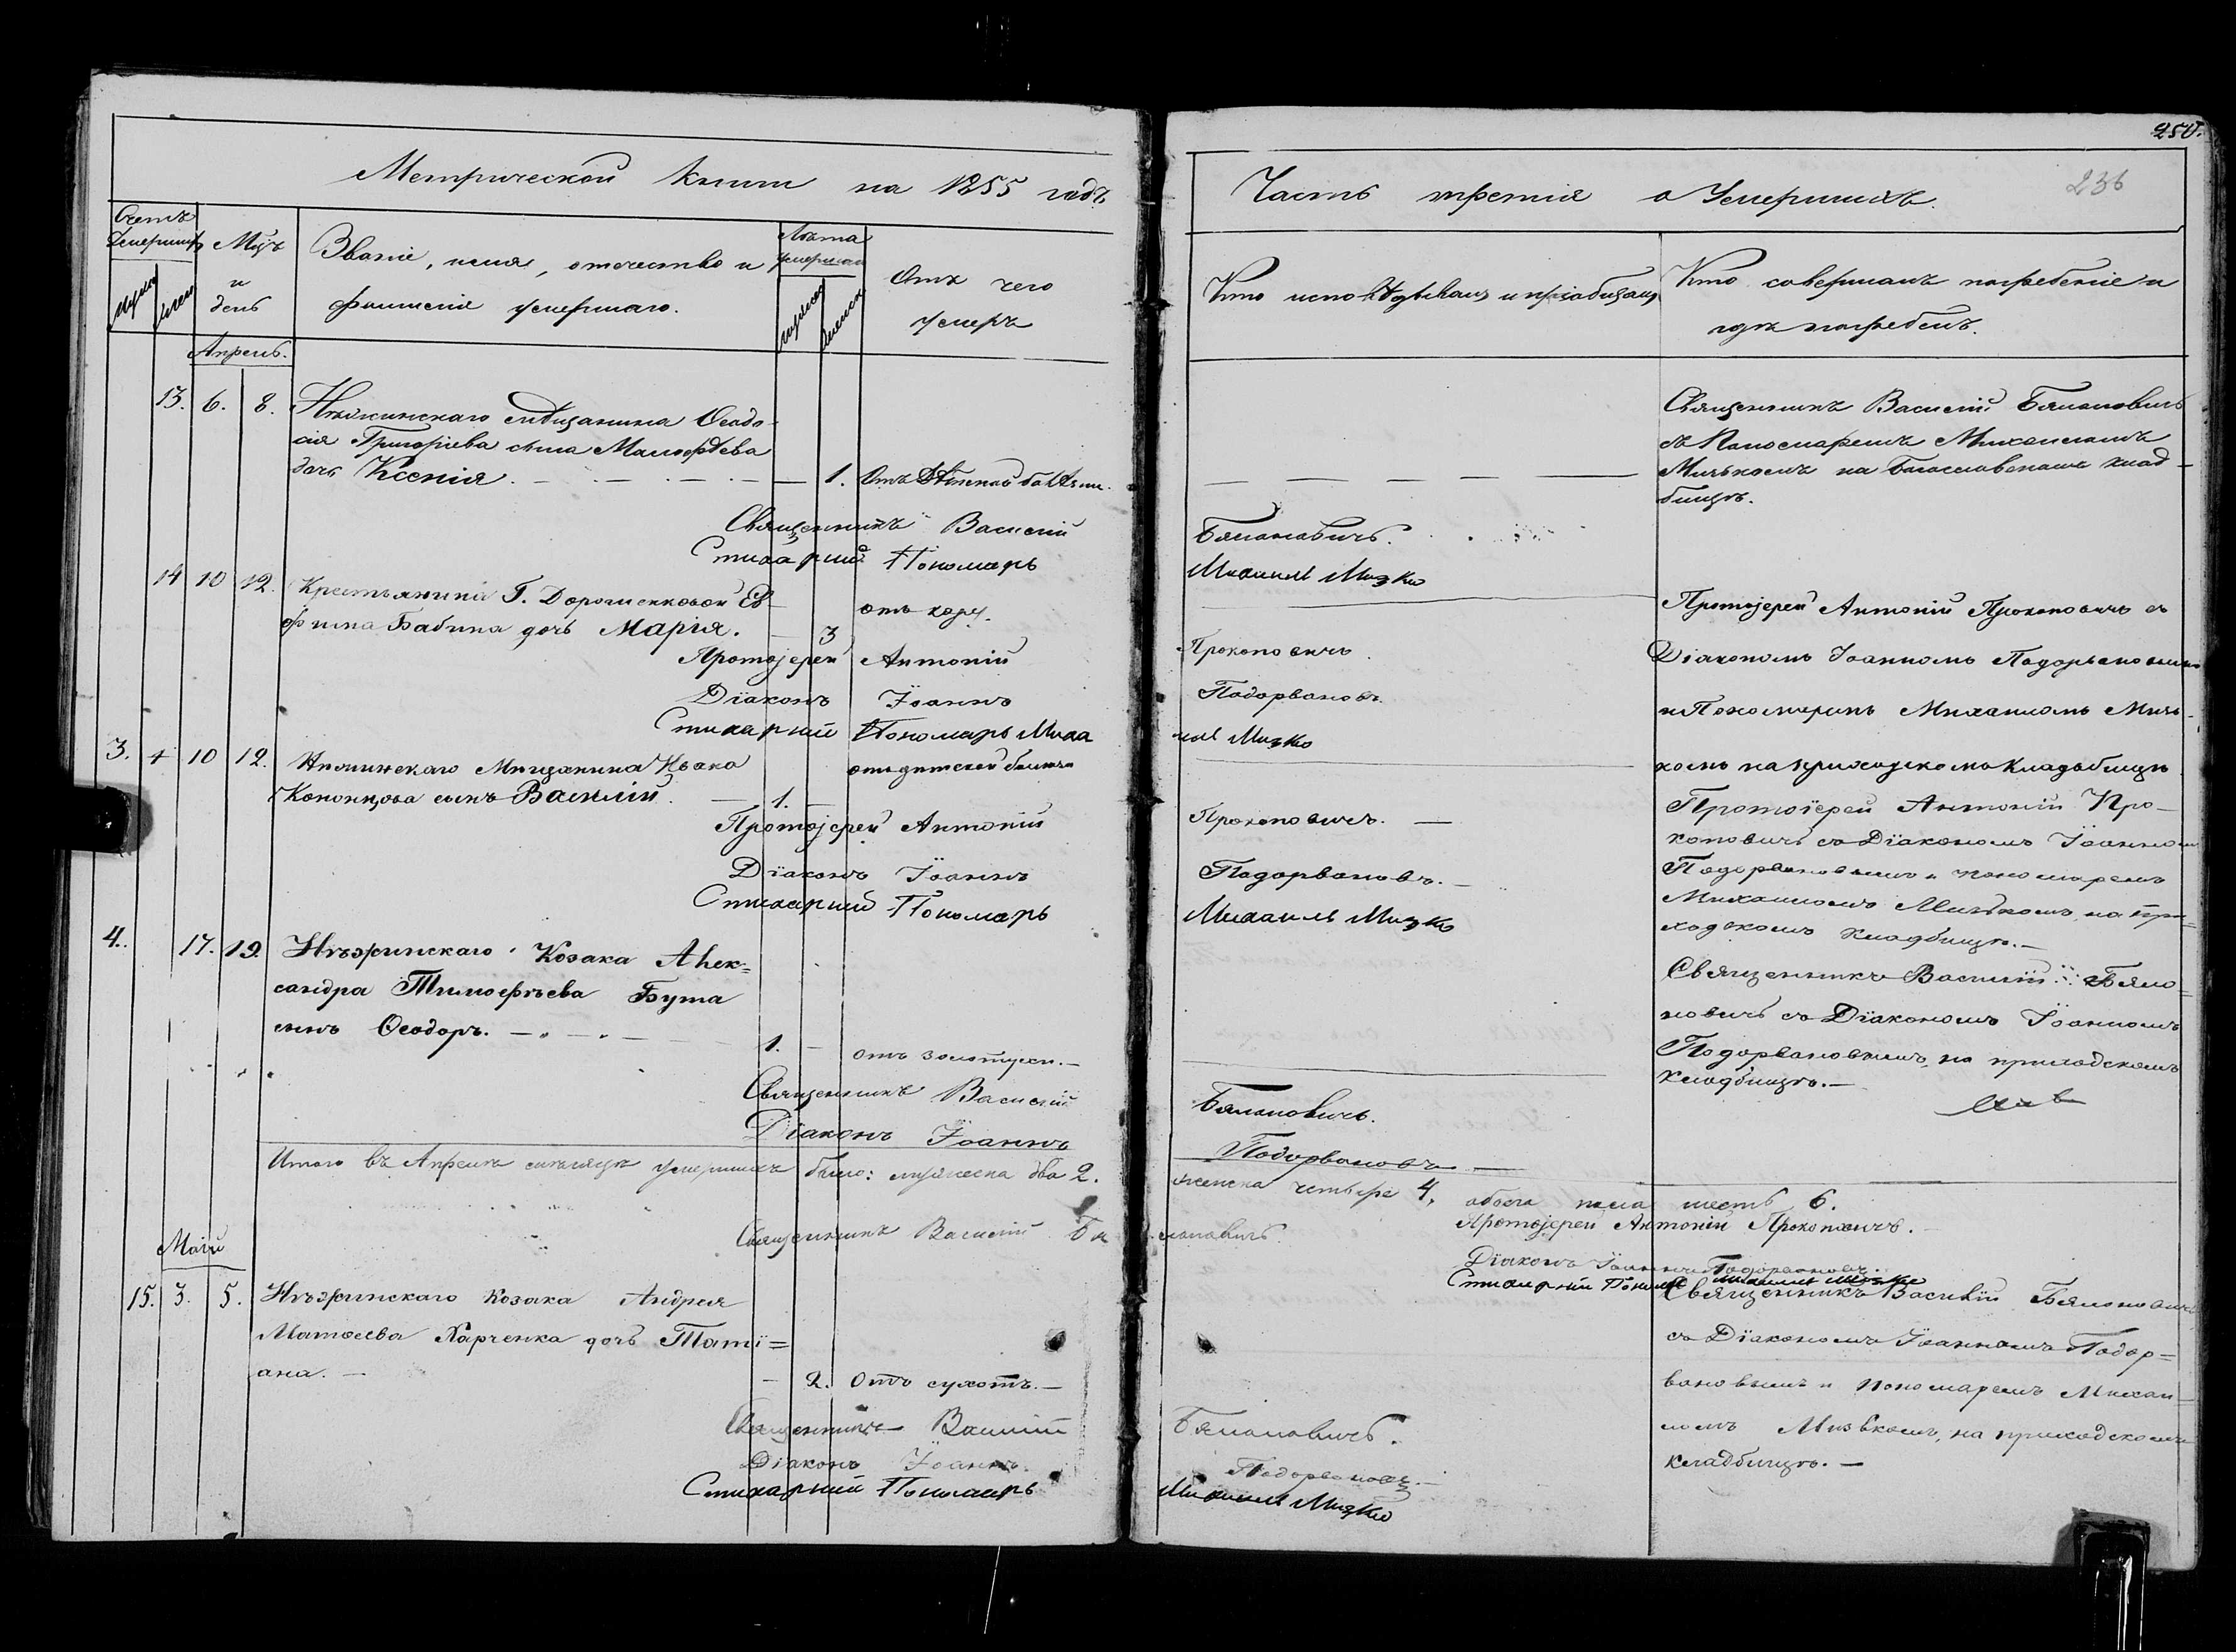 250.
236
Метрической книги на 1855 годъ
Часть третія о Умершихъ.
Счетъ
Умершихъ
Мцъ
и
день
Званіе, имя, отчество и
фамилія умершаго.
Лѣта
умершаго
Отъ чего
умеръ
Кто исповѣдывалъ и пріобщалъ
Кто совершалъ погребеніе и
гдѣ погребенъ.
Апрель.
13. 6. 8. Нѣжинскаго мѣщанина Ѳеодо-
сія Григоріева сына Малофѣева
дочь Ксенія. 1. Отъ
Священникъ Василій Бялановичь.
Стихарный Пономарь Михаилъ Мизко
Священникъ Василій Бялановичь
съ Пономаремъ Михаиломъ
Мизькомъ на Богословскомъ клад-
бищѣ.
14 10 12. Крестьянина Г. Дорошенковой Ев-
фима Бабича дочь Марія. 3 отъ кору.
Протоіерей Антоній Прокоповичъ
Діаконъ Іоаннъ Подорвановъ.
Стихарный Пономарь Михаилъ Мизко
Протоіерей Антоній Прокоповичъ съ
Діакономъ Іоанномъ Подорвановымъ
и Пономаремъ Михаиломъ Мизь-
комъ на приходскомъ кладбищѣ
3. 10 12. Нѣжинскаго Мѣщанина Ивана
Кононцова сынъ Василій. 1. отъ дитской болѣзни
Протоіерей Антоній Прокоповичъ.
Діаконъ Іоаннъ Подорвановъ.
Стихарный Пономарь Михаилъ Мизко
Протоіерей Антоній Про-
коповичъ съ Діакономъ Іоанномъ
Подорвановымъ и пономаремъ
Михаиломъ Мизькомъ, на при-
ходскомъ кладбищѣ.
4. 17. 19. Нѣжинскаго Козака Алек=
сандра Тимофѣева Бута
сынъ Ѳеодоръ. 1. отъ золотухи.
Священникъ Василій Бялановичь.
Діаконъ Іоаннъ Подорвановъ
Священникъ Василій Бяло=
новичь съ Діакономъ Іоанномъ
Подорвановымъ, на приходскомъ
кладбищѣ.
Итого въ Апрелѣ мѣсяцѣ умершихъ было: мужеска два 2.
женска четыре 4, обоего пола шесть 6.
Священникъ Василій Бялановичь.
Протоіерей Антоній Прокоповичъ.
Діаконъ Іоаннъ Подорвановъ.
Стихарный Пономарь Михаилъ Мизко
Маій
15. 3. 5. Нѣжинскаго Козака Андрея
Матѳеева Харченка дочь Таті=
ана. 2. Отъ сухотъ.
Священникъ Василій Бялановичь.
Діаконъ Іоаннъ Подорвановъ.
Стихарный Пономарь Михаилъ Мизко
Священникъ Василій Бялоновичь
съ Діакономъ Іоанномъ Подор=
вановымъ и пономаремъ Михаи-
ломъ Мизькомъ, на приходскомъ
кладбищѣ.